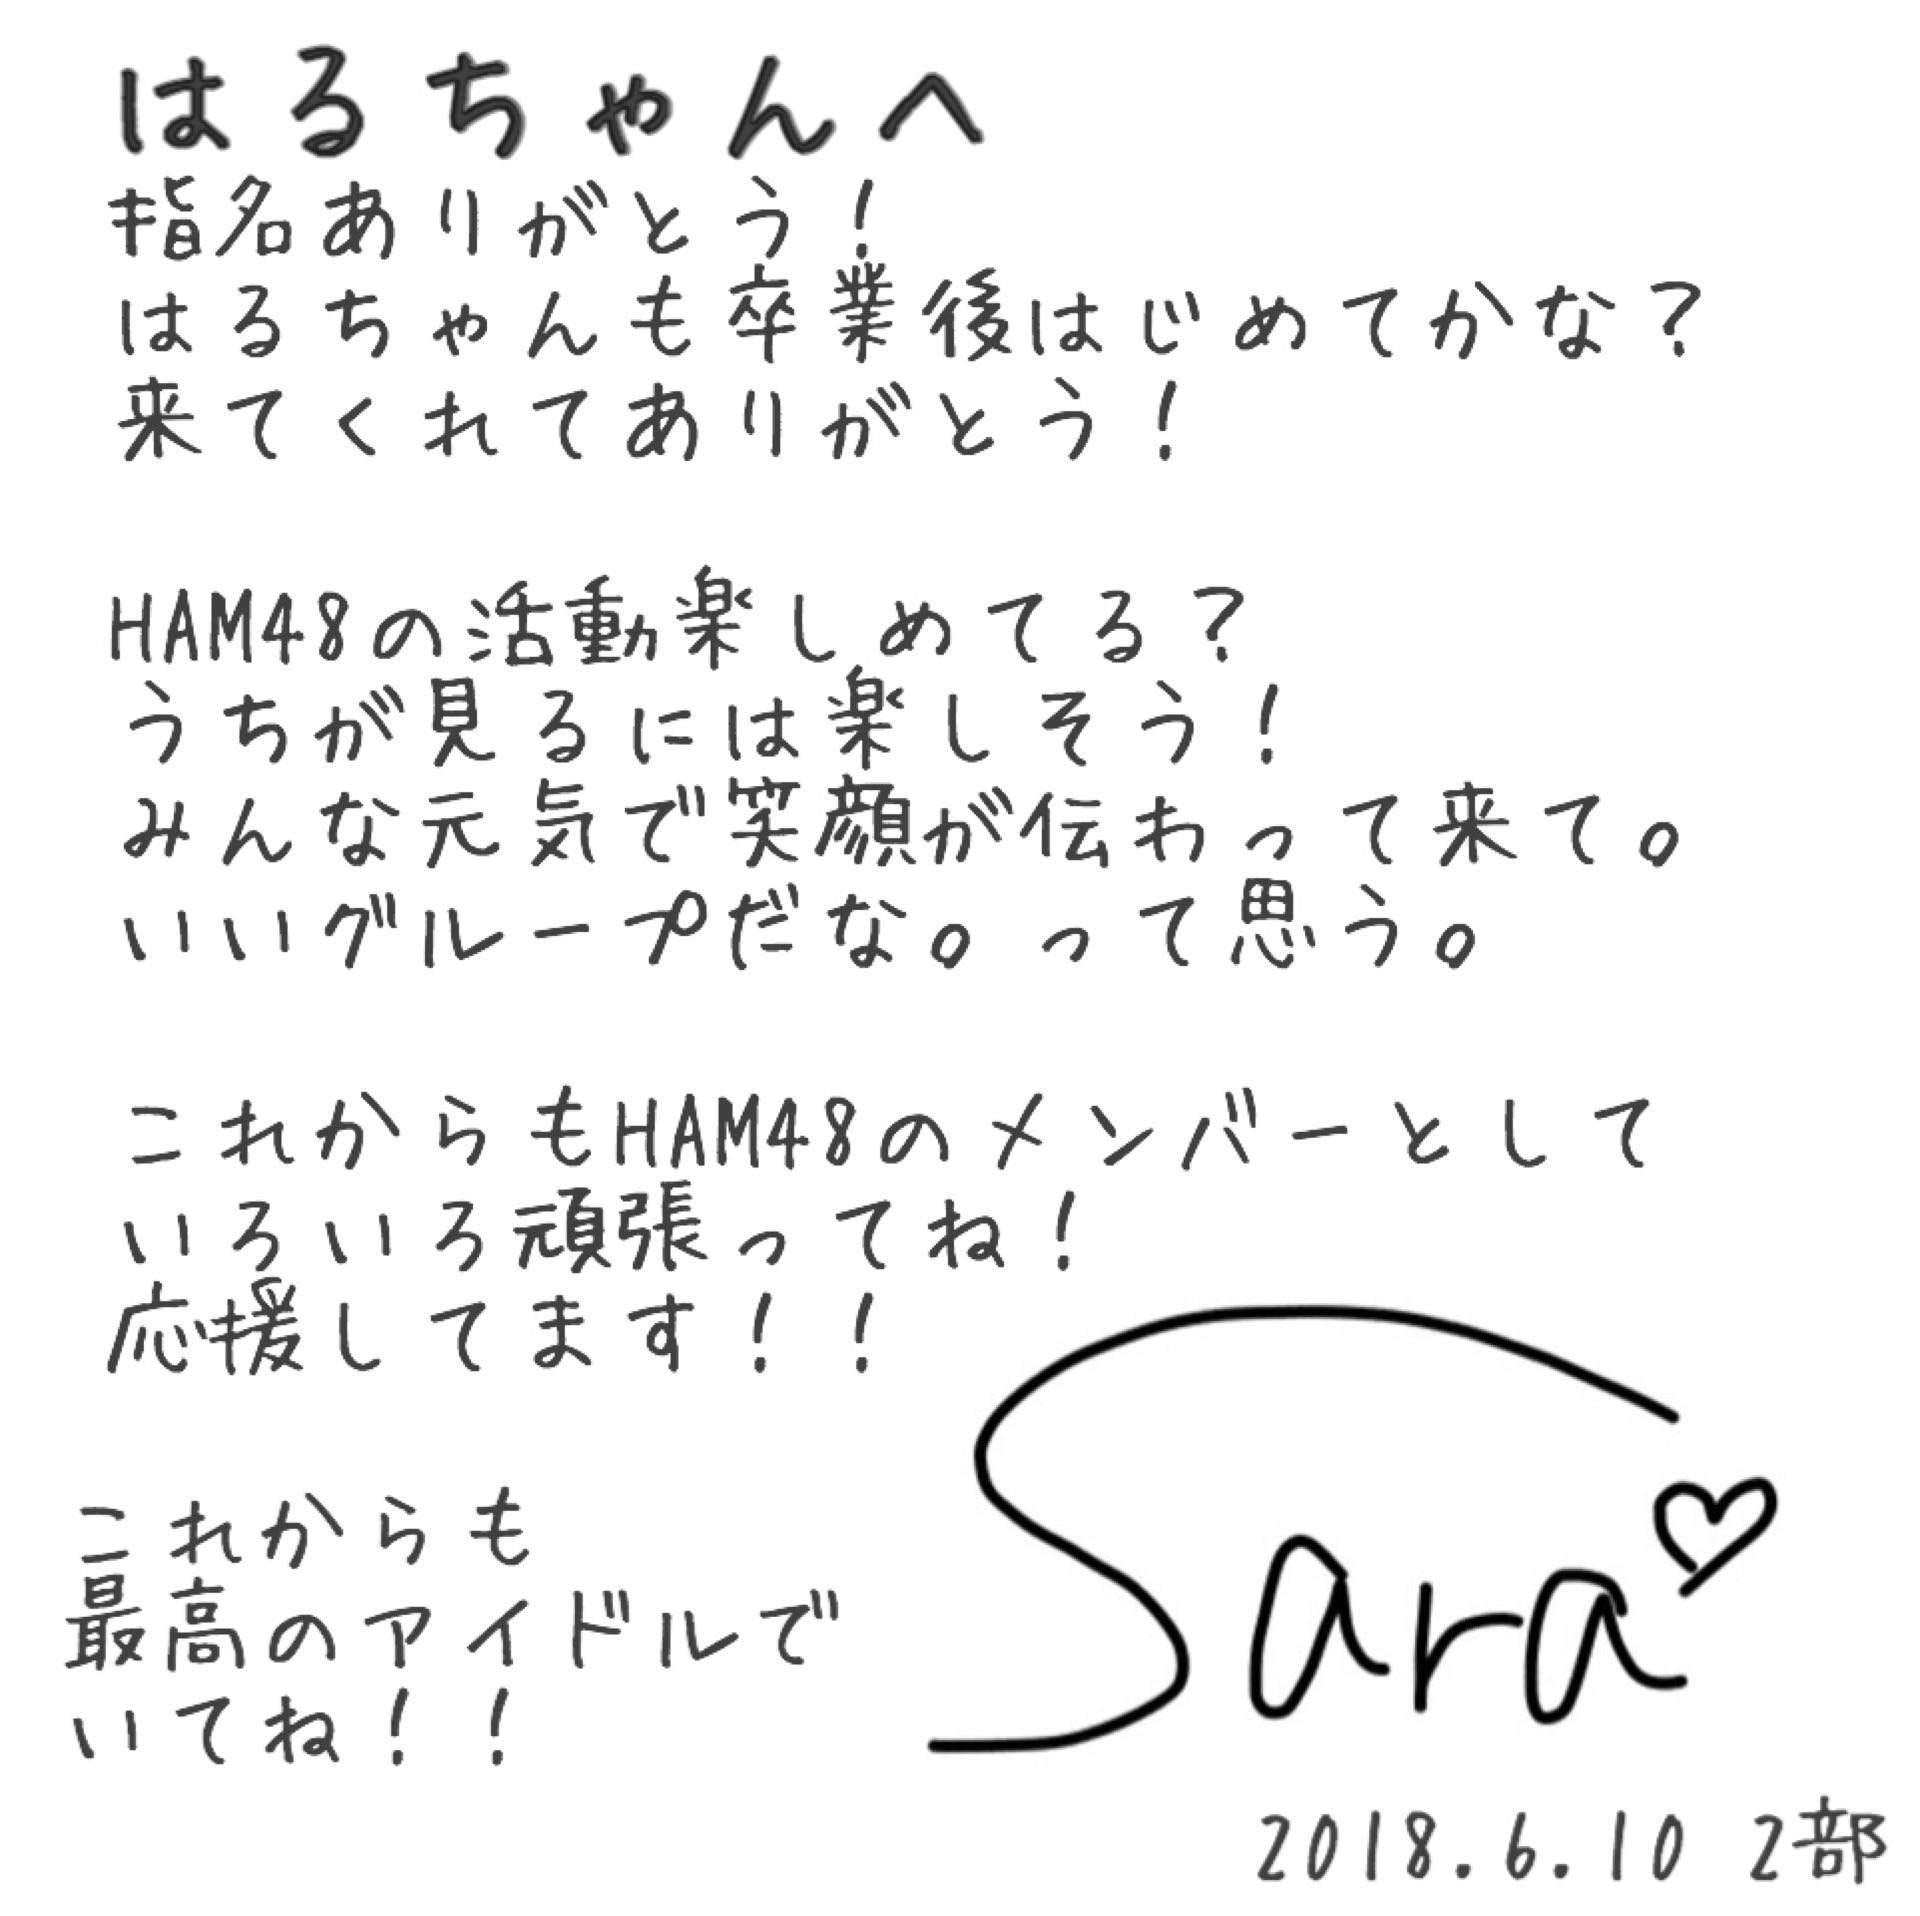 はるちゃんへ
指名ありがとう！
はるちゃんも卒業後はじめてかな？
来てくれてありがとう！
HAM48の活動楽しめてる？
うちが見るには楽しそう！
みんな元気で笑顔が伝わって来て。
いいグループだな。って思う。
これからもHAM48のメンバーとして
いろいろ頑張ってね！
応援してます！！
これからも
最高のアイドルで
いてね！！
Sara♡
2018.6.10 2部